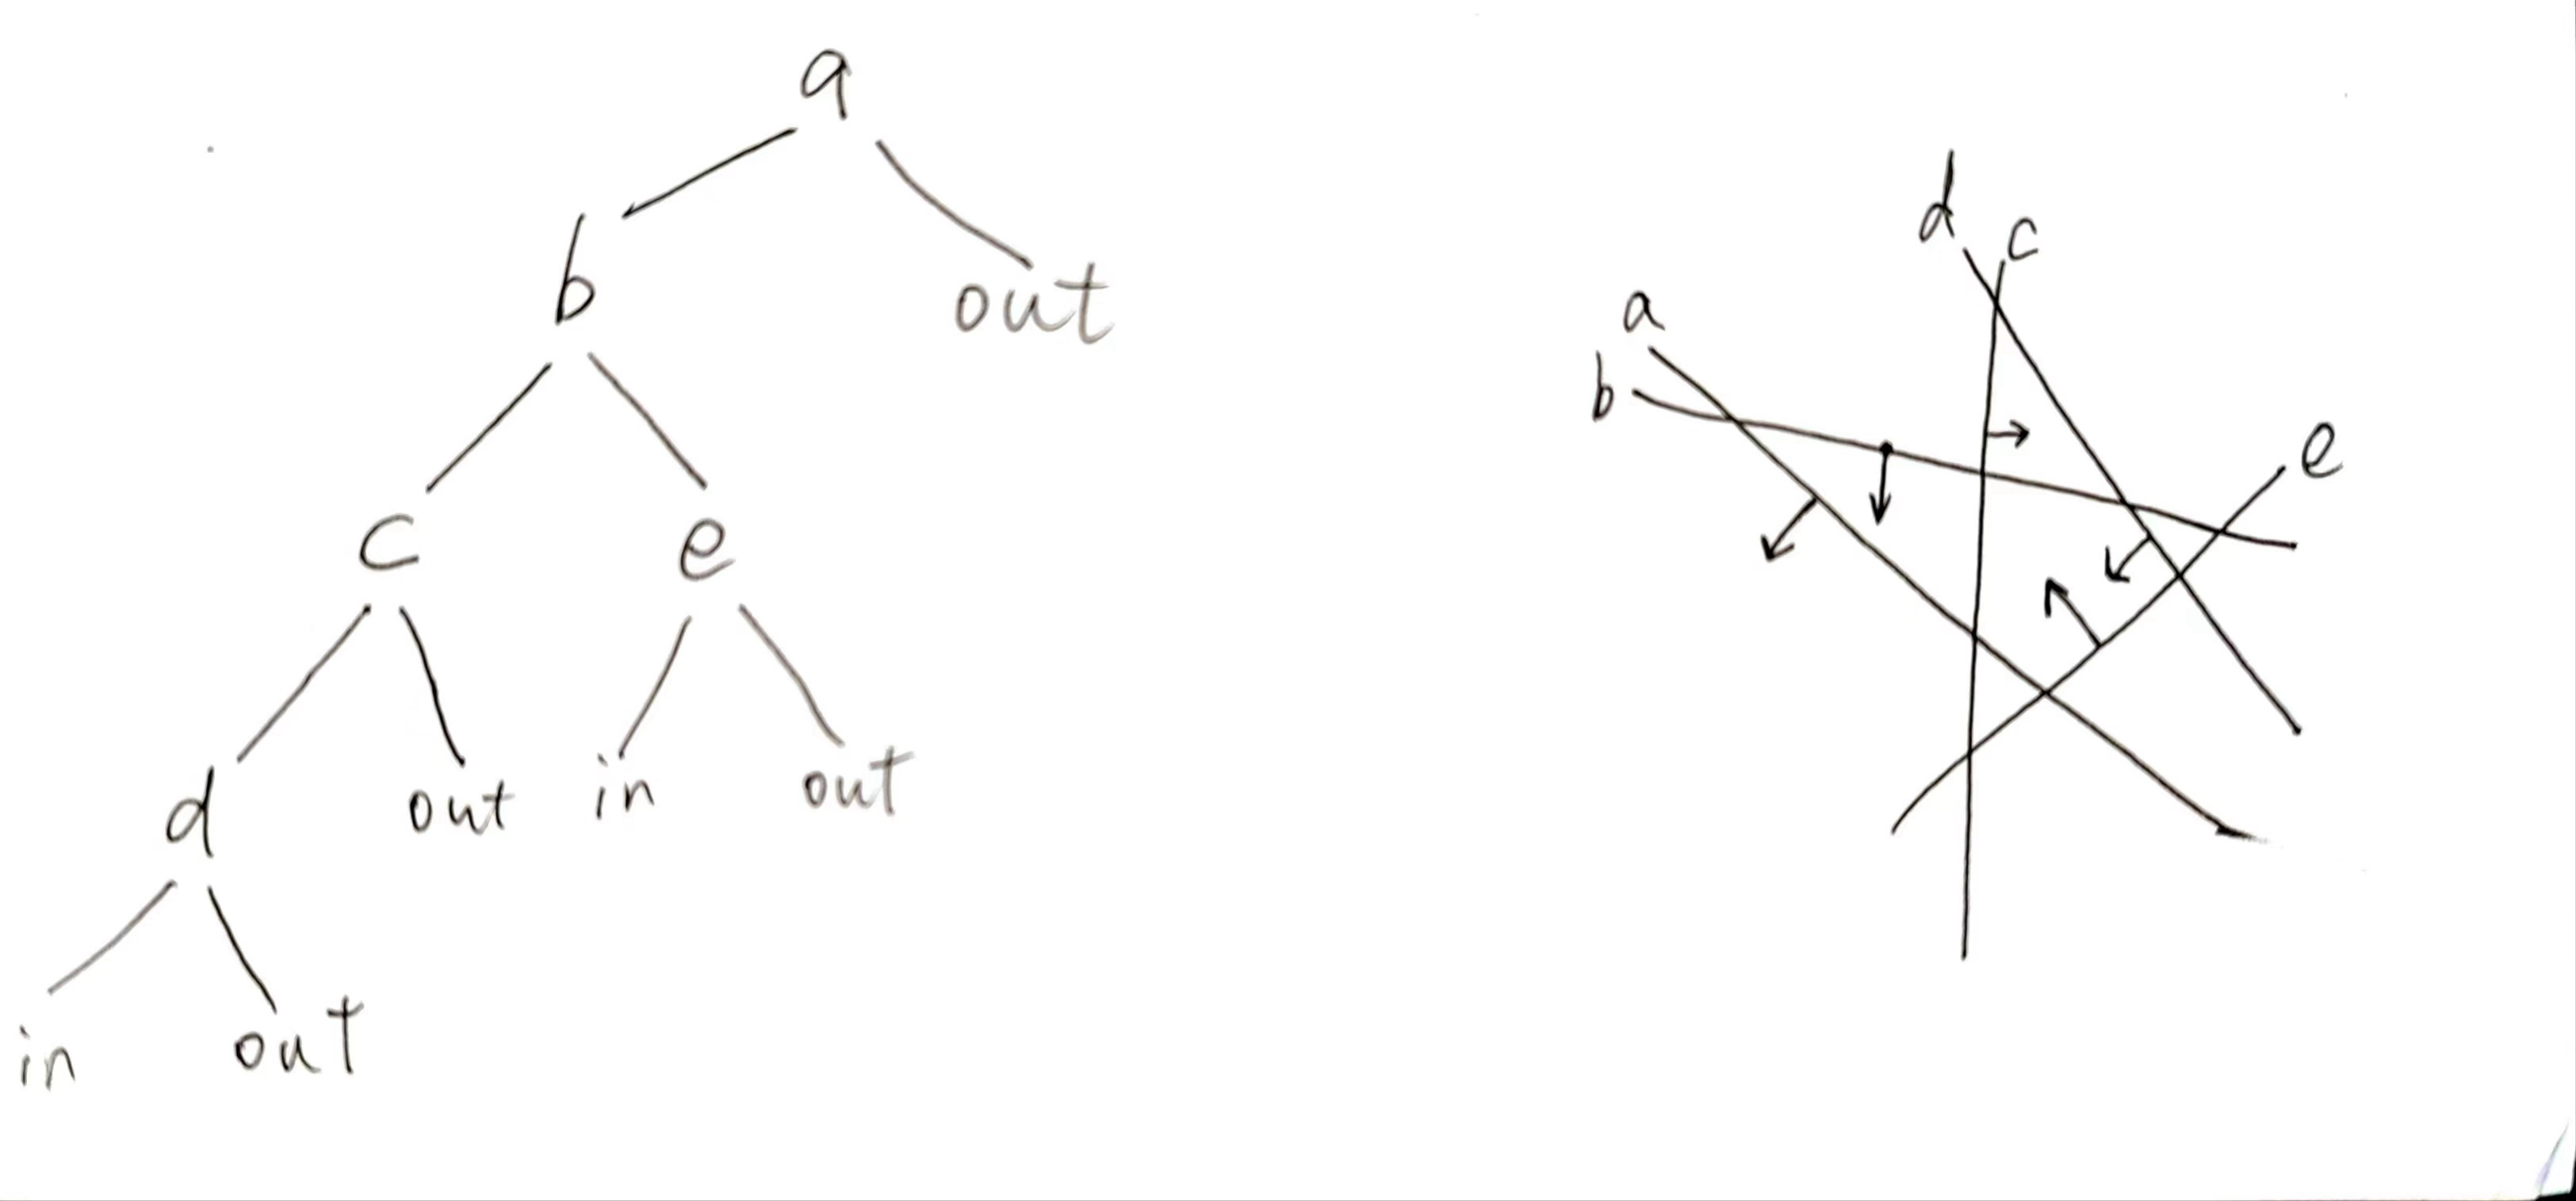 a
b
out
c
e
d
out
in
out
in
out
d
c
a
b
e